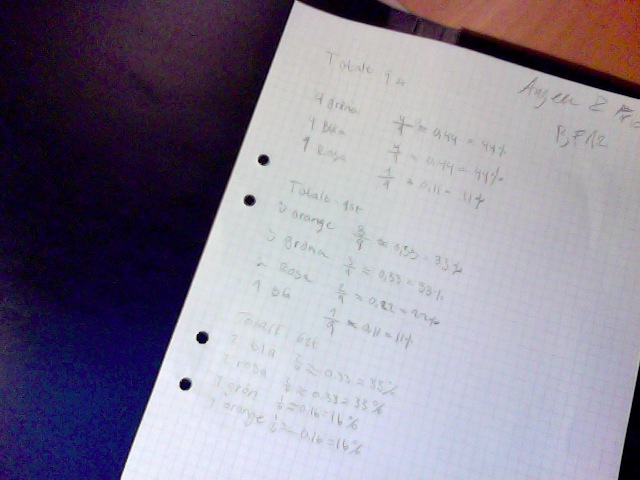 Totalt 9 st
4 gröna 4/9 ≈ 0,44 = 44%
4 Blåa 4/9 ≈ 0,44 = 44%
1 Rosa 1/9 ≈ 0,11 = 11%
Totalt 9st
3 orange 3/9 ≈ 0,33 = 33%
3 gröna 3/9 ≈ 0,33 = 33%
2 Rosa 2/9 ≈ 0,22 = 22%
1 Blå 1/9 ≈ 0,11 = 11%
Totalt 6st
2 blåa 2/6 ≈ 0.33 = 33%
2 rosa 2/6 ≈ 0.33 = 33%
1 grön 1/6 ≈ 0.16 = 16%
1 orange 1/6 ≈ 0.16 = 16%
BFA2